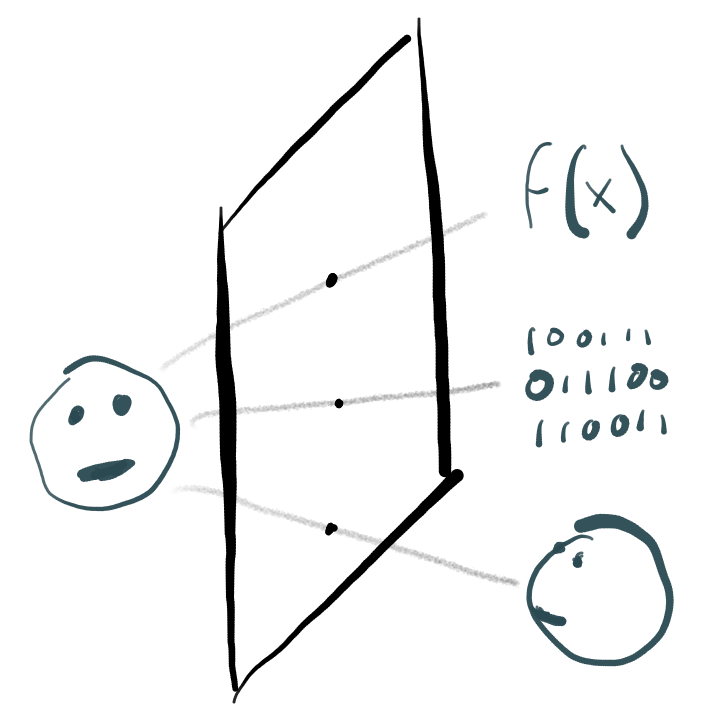 F(x)
100111
0111100
110011